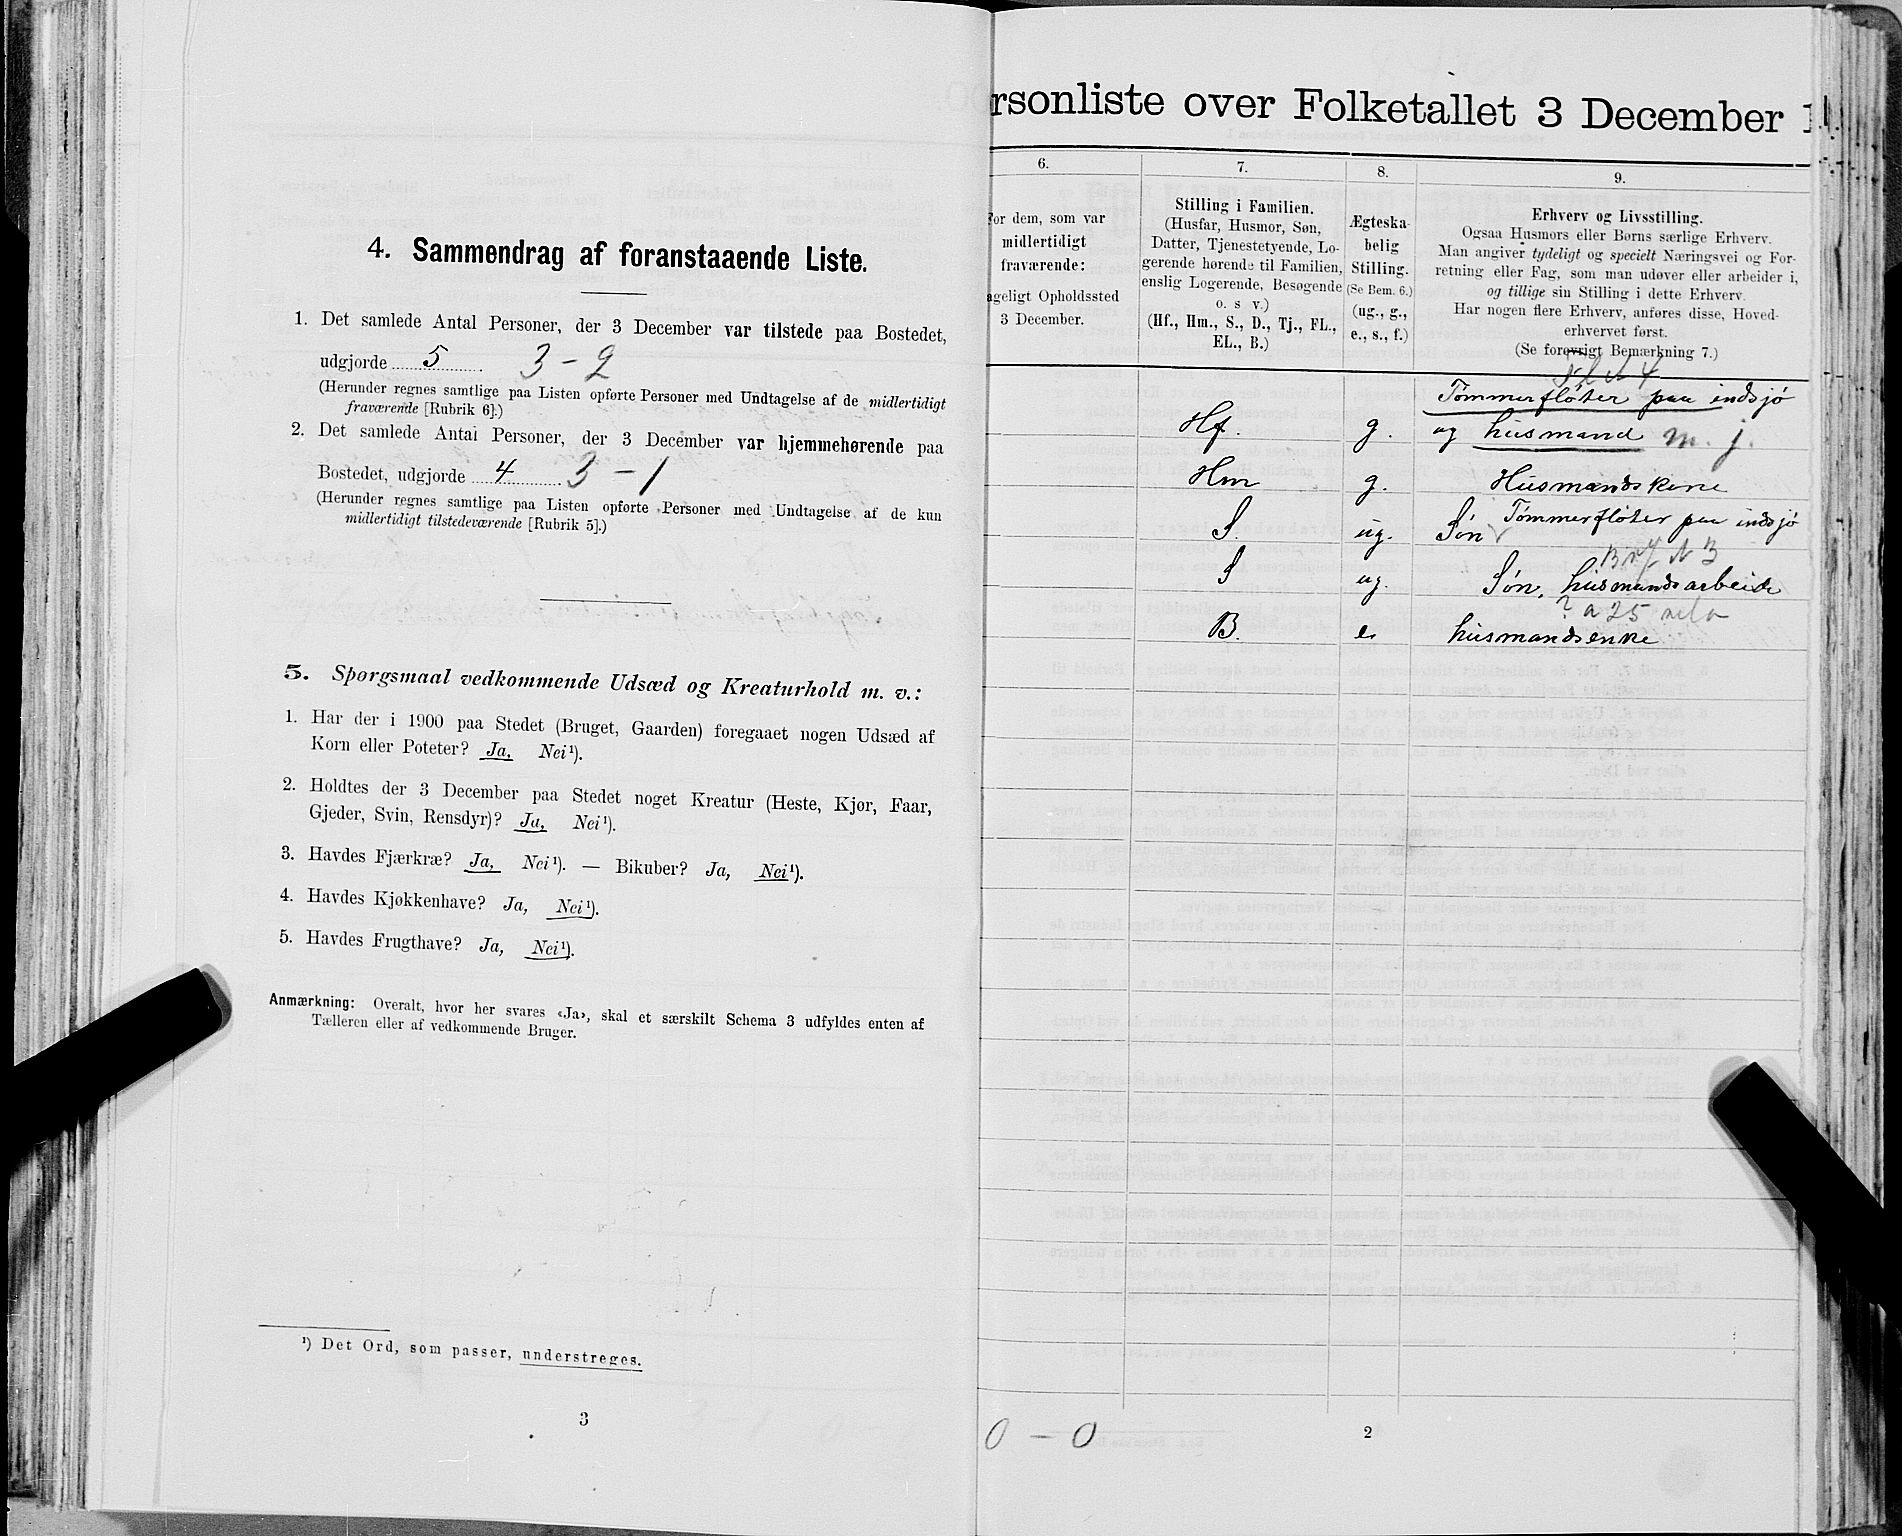 4. Sammendrag af foranstaaende Liste.
1. Det samlede Antal Personer, der 3 December var tilstede paa Bostedet,
udgjorde 5 . 3 - 2
(Herunder regnes samtlige paa Listen opførte Personer med Undtagelse af de midlertidigt
fraværende [Rubrik 6].)
2. Det samlede Antal Personer, der 3 December var hjemmehørende paa
Bostedet, udgjorde 4 . 3 - 1
(Herunder regnes samtlige paa Listen opførte Personer med Undtagelse af de kun
midlertidigt tilstedeværende [Rubrik 5].)
5. Spørgsmaal vedkommende Udsæd og Kreaturhold m. v.:
1. Har der i 1900 paa Stedet (Bruget, Gaarden) foregaaet nogen Udsæd af
Korn eller Poteter? Ja, Nei¹).
2. Holdtes der 3 December paa Stedet noget Kreatur (Heste, Kjør, Faar,
Gjeder, Svin, Rensdyr)? Ja, Nei¹).
3. Havdes Fjærkræ? Ja, Nei¹). — Bikuber? Ja, Nei¹).
4. Havdes Kjøkkenhave? Ja, Nei¹).
5. Havdes Frugthave? Ja, Nei¹).
Anmærkning: Overalt, hvor her svares «Ja», skal et særskilt Schema 3 udfyldes enten af
Tælleren eller af vedkommende Bruger.
¹) Det Ord, som passer, understreges.
3
rsonliste over Folketallet 3 December 1
6.
For dem, som var
midlertidigt
fraværende:
ageligt Opholdssted
3 December.
7.
Stilling i Familien.
(Husfar, Husmor, Søn,
Datter, Tjenestetyende, Lo-
gerende hørende til Familien,
enslig Logerende, Besøgende
o. s v.)
(Hf., Hm., S., D., Tj., FL.,
EL., B.)
8.
Ægteska-
belig
Stilling.
(Se Bem. 6.)
(ug., g.,
e., s., f.)
9.
Erhverv og Livsstilling.
Ogsaa Husmors eller Børns særlige Erhverv.
Man angiver tydeligt og specielt Næringsvei og For-
retning eller Fag, som man udøver eller arbeider i,
og tillige sin Stilling i dette Erhverv.
Har nogen flere Erhverv, anføres disse, Hoved-
erhvervet først.
(Se forøvrigt Bemærkning 7.)
Tømmerfløter paa indsjø
Hf. g. og husmand m. j.
Hm g. Husmandskone
Tømmerfløter paa indsjø
S. ug. Søn
S ug. Søn, husmandsarbeide
? a 25
B. e husmandsenke
0 - 0
2